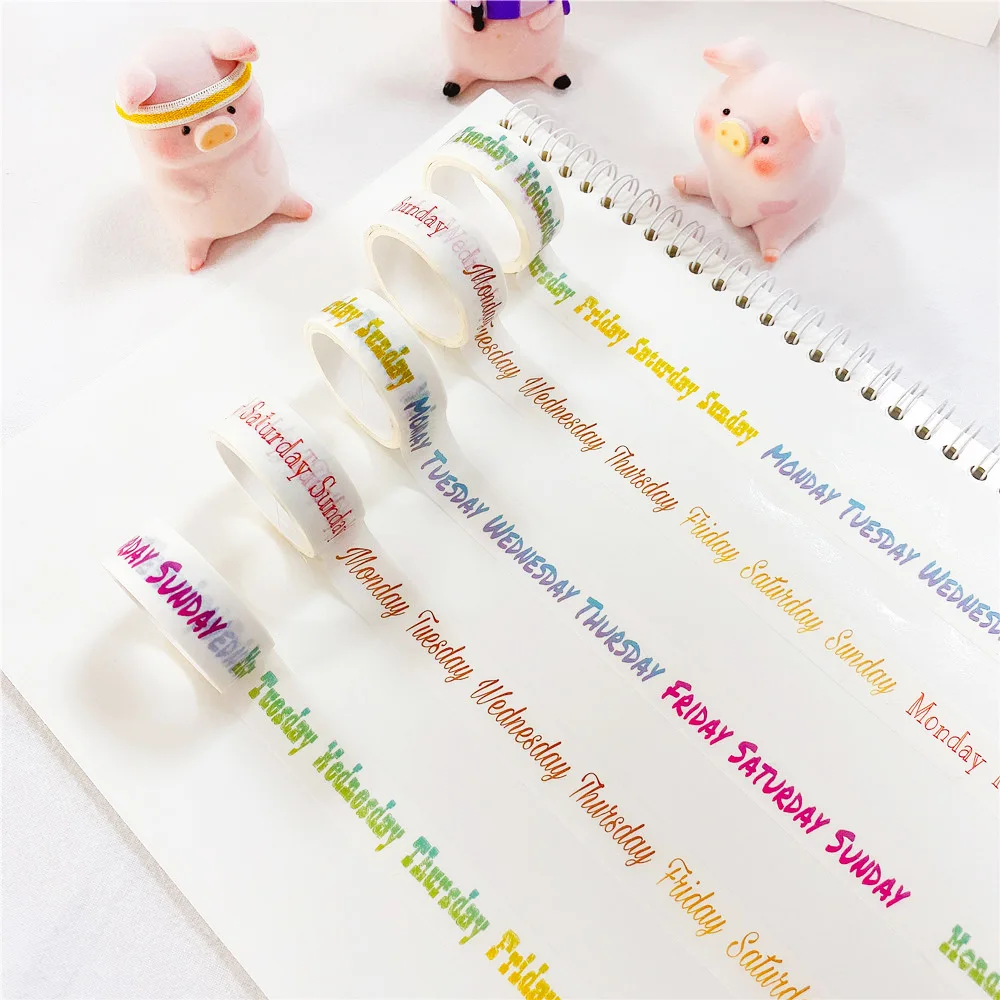 Tuesday Wednesd
rsday Friday Saturday Sunday MONDAY TUESDAY WEDNESD
Sunday
Monday Tuesday Wednesday Thursday Friday Saturday Sunday Monday
rday Sunday
MONDAY TUESDAY WEDNESDAY THURSDAY FRIDAY SATURDAY SUNDAY Monday
Saturday Sunday
Monday Tuesday Wednesday Thursday Friday Saturd
RDAY SUNDAY
Tuesday Wednesday Thursday Friday